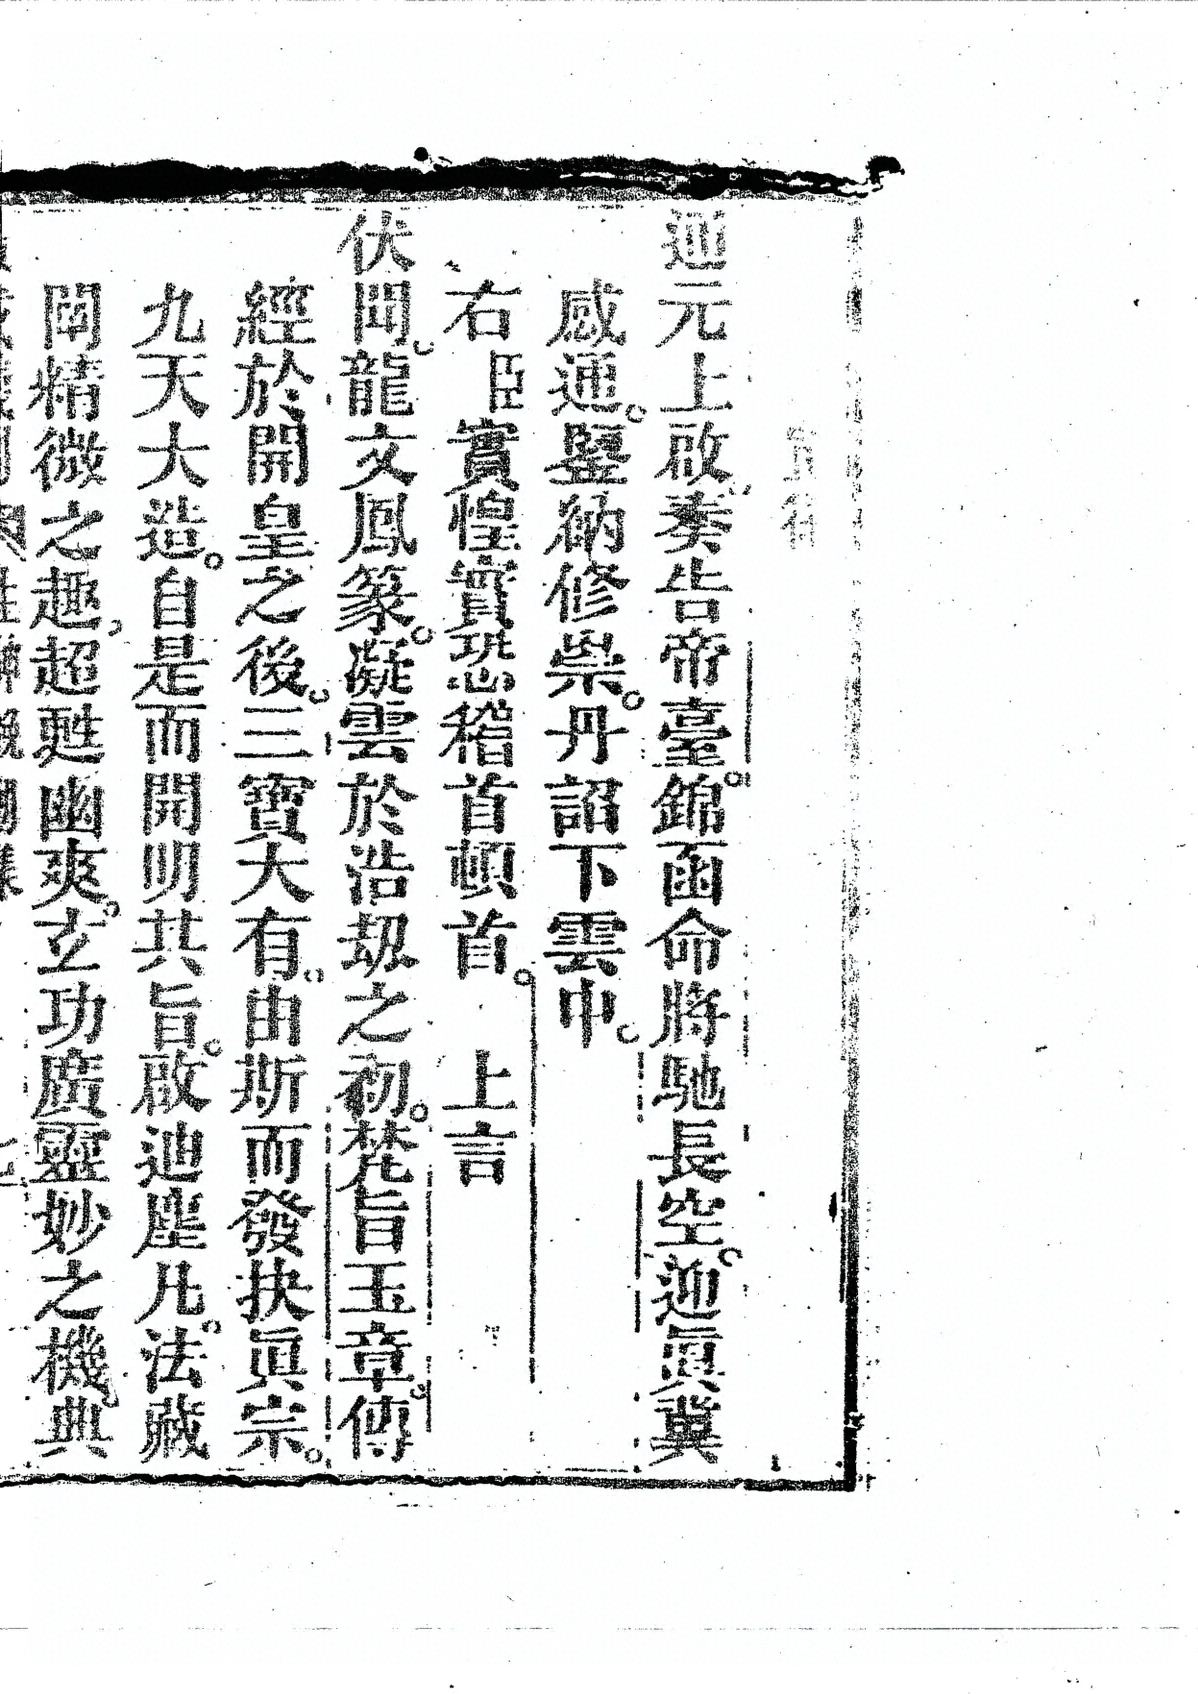 迎元上啟奏告帝臺錦函命將馳長空迎眞冀
感通鑒納修崇丹詔下雲中
右臣實惶實恐稽首頓首 上言
伏聞龍文鳳篆凝雲於浩劫之初梵旨玉章傳
經於開皇之後三寶大有由斯而發抉眞宗
九天大造自是而開明其旨啟迪塵凡法藏
闡精微之趣超甦幽爽立功廣靈妙之機典